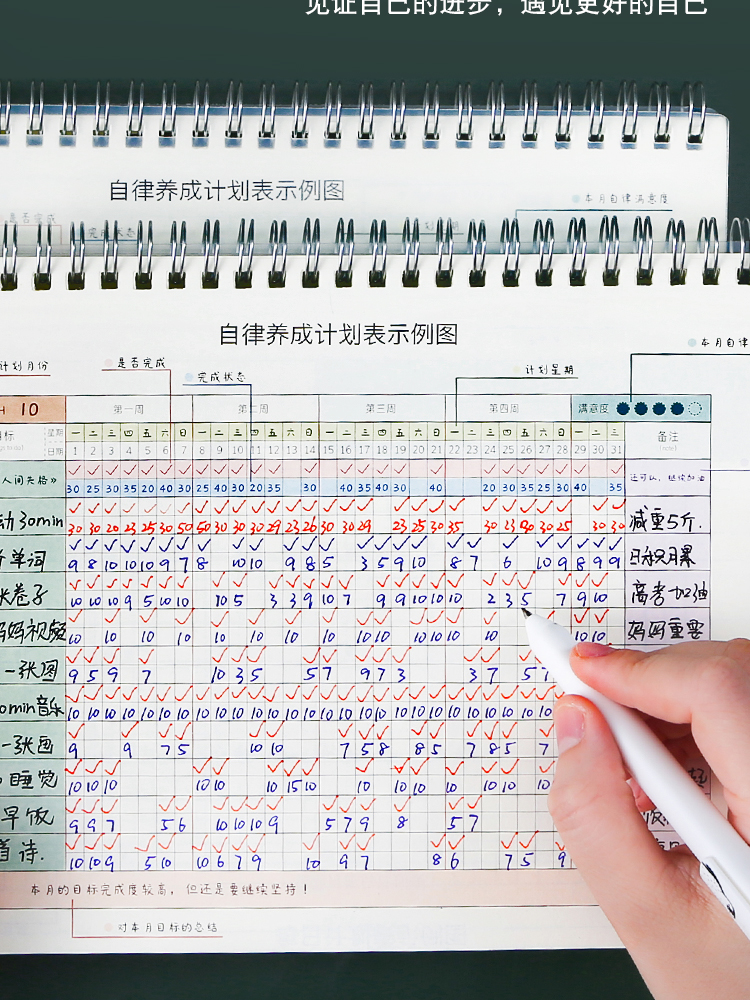 见证自己的进步，遇见更好的自己
自律养成计划表示例图
本月自律满意度
是否完成
完成状态
自律养成计划表示例图
计划月份
是否完成
完成状态
计划星期
本月自律
10 第一周 第二周 第三周 第四周 满意度
星期 一 二 三 四 五 六 日 一 二 三 四 五 六 日 一 二 三 四 五 六 日 一 二 三 四 五 六 日 一 二 三 备注
日期 1 2 3 4 5 6 7 8 9 10 11 12 13 14 15 16 17 18 19 20 21 22 23 24 25 26 27 28 29 30 31
人间失格》 30 25 30 35 20 40 30 25 40 30 20 35 30 40 35 40 30 40 20 30 35 30 40 35 还可以，继续加油
动30min 减重5斤.
单词 9 8 10 10 10 9 7 8 10 10 9 8 5 3 5 9 10 8 7 6 10 9 8 9 9
卷子 10 10 10 9 5 10 10 10 5 3 3 9 10 7 9 9 10 10 10 10 2 3 5 7 9 10 高考加油
妈视频 10 10 10 10 10 10 10 10 10 10 10 10 10 10 10 10 10 妈妈重要
一张图 9 5 9 7 10 3 5 5 7 9 7 3 3 7 5 7
0min音乐 10 10 10 10 10 10 10 10 10 10 10 10 10 10 10 10 10 10 10 10 10 10 10 10 10 10 10
一张画 9 9 7 5 10 10 7 5 8 8 5 7 8 5 7
睡觉 10 10 10 10 10 10 15 10 10 10 10 10 10 10 10
早饭 9 9 7 5 6 10 10 10 9 5 7 9 8 5 7
诗. 10 10 9 5 10 10 6 7 9 10 9 7 8 6 7 5 9
本月的目标完成度较高，但还是要继续坚持！
对本月目标的总结